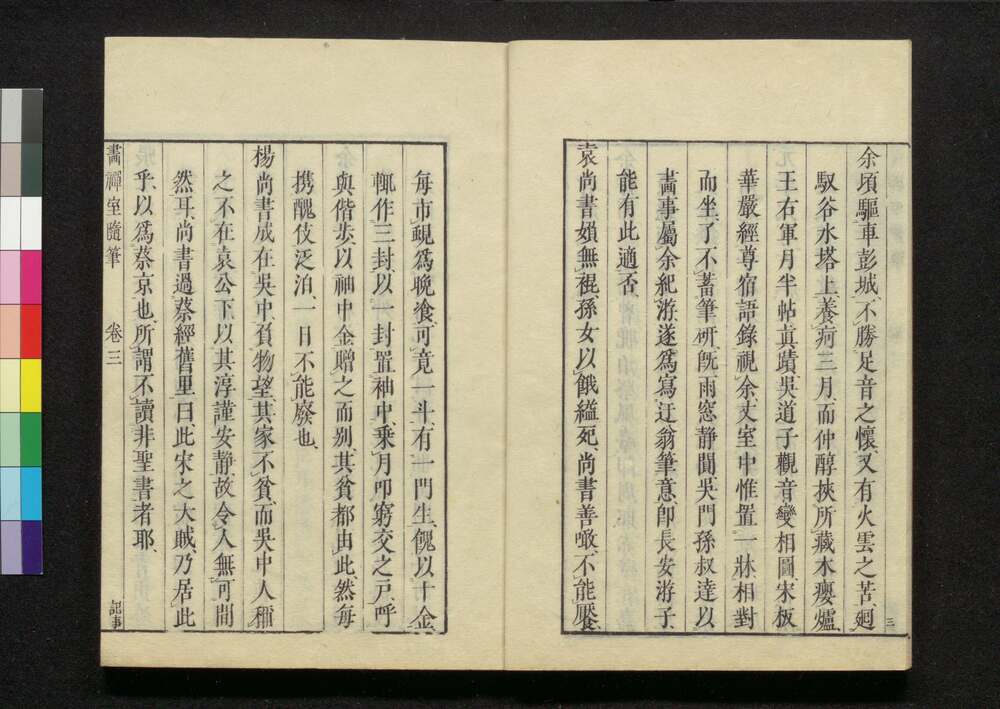 余頃驅車彭城、不勝足音之懷、又有火雲之苦、廻
馭谷水塔上、養疴三月、而仲醇挾所藏木癭爐、
王右軍月半帖眞蹟、吳道子觀音變相圖、宋板
華嚴經尊宿語錄視余、丈室中惟置一牀、相對
而坐、了不蓄筆研、旣雨窓静闃、吳門孫叔達以
畵事屬余紀游、遂爲寫迂翁筆意、卽長安游子、
能有此適否、
袁尚書嬾無裩、孫女以餓縊死、尚書善噉、不能饜、
三
每市覕爲晚飡、可竟一斗、有一門生、餽以十金、
輒作三封、以一封置袖中、乘月叩窮交之戸、呼
與偕步、以袖中金贈之而别、其貧都由此、然每
携醜伎泛泊、一日不能廢也、
楊尚書成在吳中、負物望、其家不貧、而吳中人稱
之不在袁公下、以其淳謹安靜、故令人無可間
然耳、尚書過蔡經舊里曰、此宋之大賊、乃居此
乎、以爲蔡京也、所謂不讀非聖書者耶、
畵禪室隨筆 卷三
記事